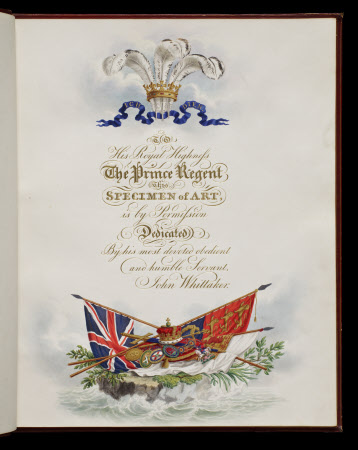 ICH DIEN
TO
His Royal Highness
The Prince Regent
This
SPECIMEN of ART,
is by Permission
Dedicated
By his most devoted obedient
and humble Servant,
John Whittaker.